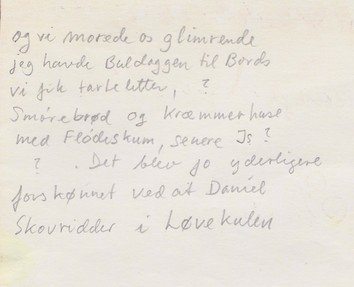 og vi morede os glimrende
jeg havde Buldoggen til Bords
vi fik tarteletter, ?
Smörebrød og Kræmmerhuse
med Flödeskum, senere Is?
? . Det blev jo yderligere
forskønnet ved at Daniel
Skovridder i Løvekulen